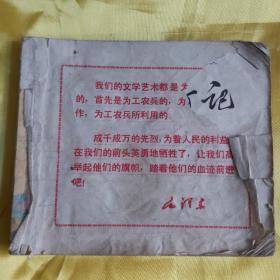 我们的文学艺术都是为
的，首先是为工农兵的，为
作，为工农兵所利用的
记
成千成万的先烈，为着人民的利益
在我们的前头英勇地牺牲了，让我们高
举起他们的旗帜，踏着他们的血迹前进
吧！
毛泽东